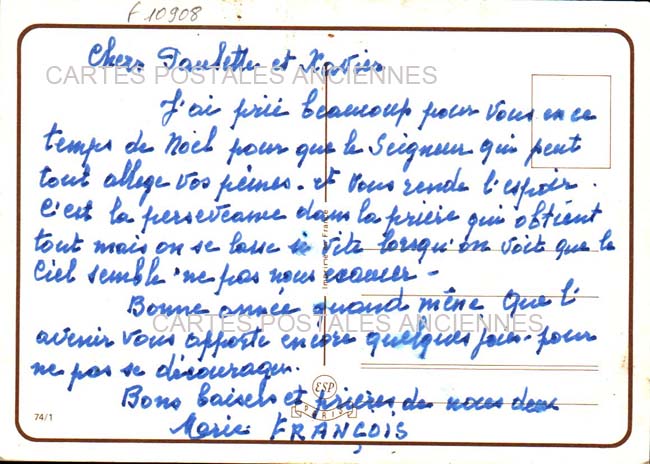 F 10908
Chers Paulette et Xavier
CARTES POSTALES ANCIENNES
J'ai prié beaucoup pour vous en ce
temps de Noël pour que le Seigneur qui peut
tout allege vos peines. et vous rende l'espoir.
C'est la perseveame dans la prière qui obtient
tout mais on se lasse si vite lorsqu'on voit que le
Ciel semble ne pas nous exaucer -
Bonne année quand même Que l'
CARTES POSTALES ANCIENNES
avenir vous apporte encore quelques joies pour
ne pas se décourager.
Bons baisers et prières de nous deux
Marie FRANÇOIS
74/1
ESP
PARIS